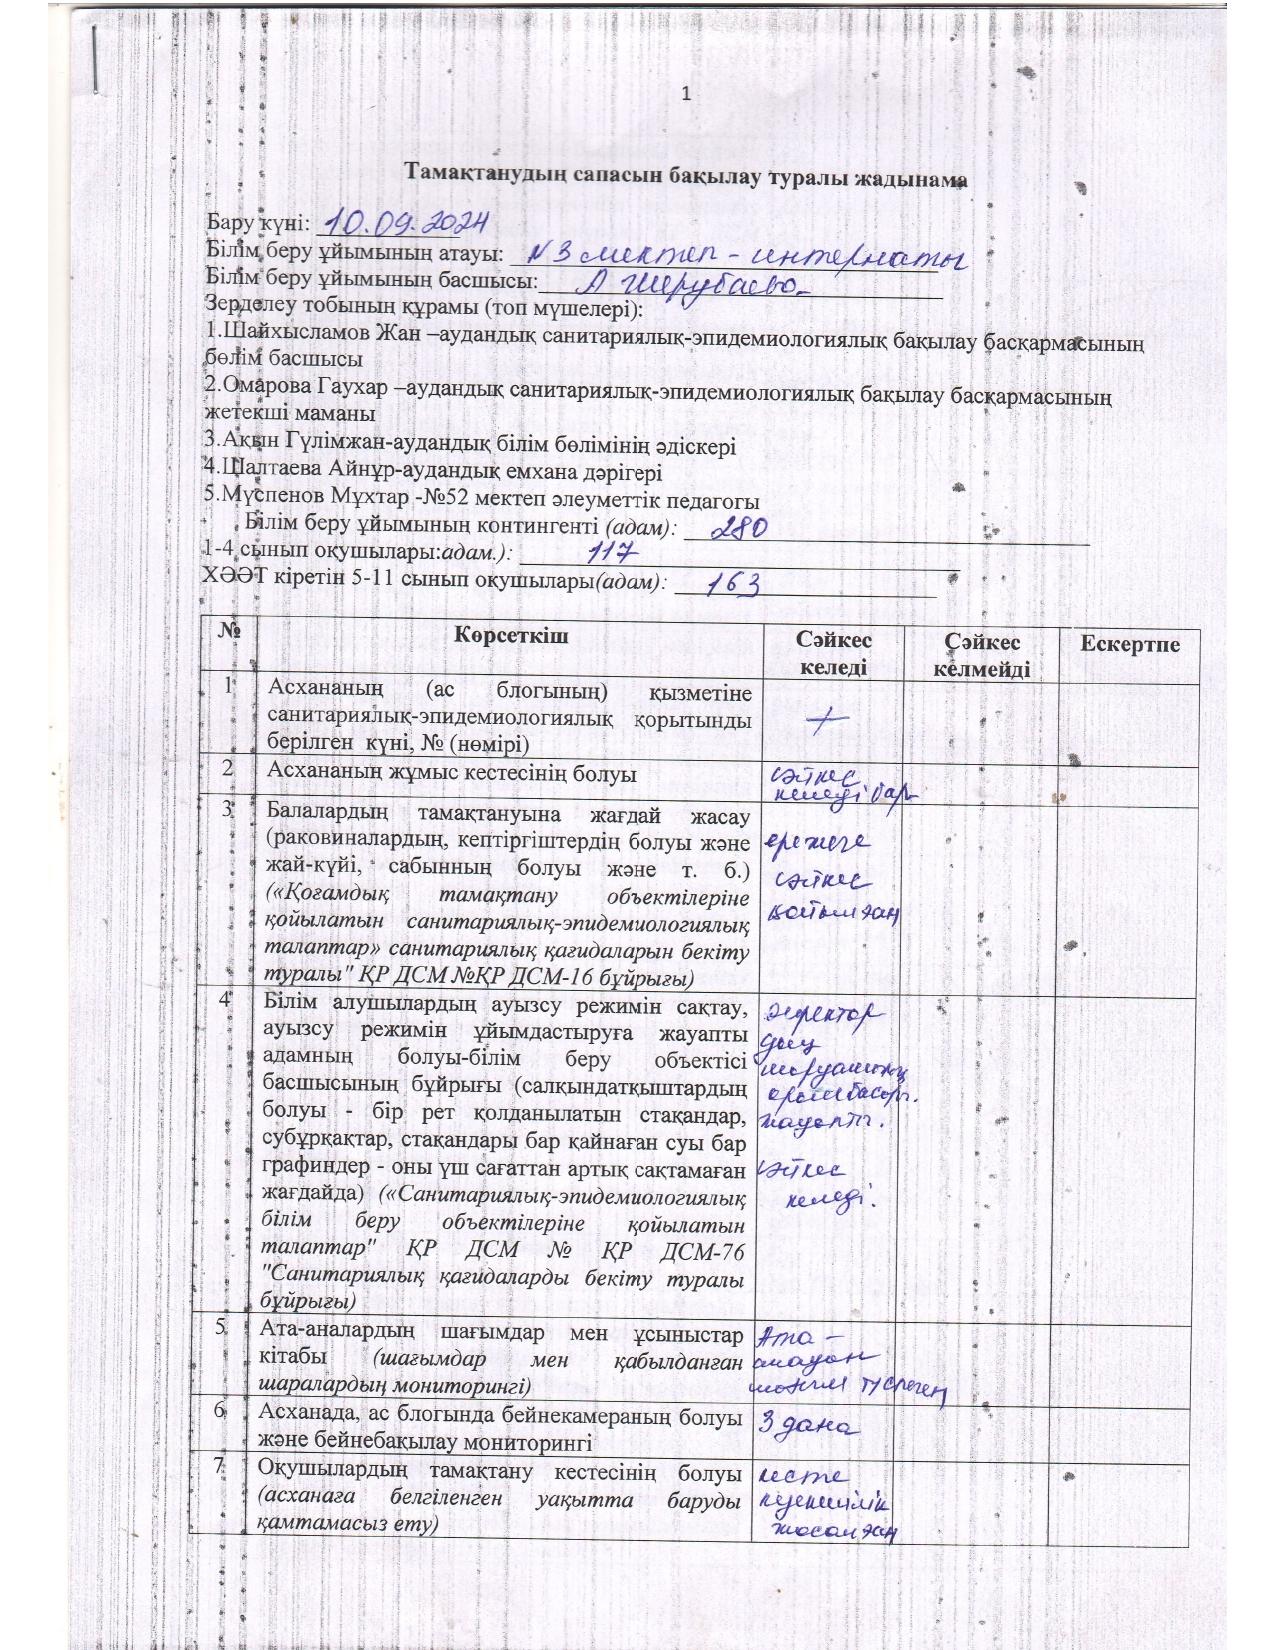 1
Тамақтанудың сапасын бақылау туралы жадынама
Бару күні: 10.09.2024
Білім беру ұйымының атауы: №3 мектеп - интернаты
Білім беру ұйымының басшысы: А Шерубаева
Зерделеу тобының құрамы (топ мүшелері):
1.Шайхысламов Жан –аудандық санитариялық-эпидемиологиялық бақылау басқармасының
бөлім басшысы
2.Омарова Гаухар –аудандық санитариялық-эпидемиологиялық бақылау басқармасының
жетекші маманы
3.Ақын Гүлімжан-аудандық білім бөлімінің әдіскері
4.Шалтаева Айнұр-аудандық емхана дәрігері
5.Мүспенов Мұхтар -№52 мектеп әлеуметтік педагогы
Білім беру ұйымының контингенті (адам): 280
1-4 сынып оқушылары:адам.): 117
ХӘӘТ кіретін 5-11 сынып оқушылары(адам): 163
№ Көрсеткіш Сәйкес келеді Сәйкес келмейді Ескертпе
1 Асхананың (ас блогының) қызметіне
санитариялық-эпидемиологиялық қорытынды
берілген күні, № (нөмірі)
+
2 Асхананың жұмыс кестесінің болуы
сәйкес
келеді бар
3 Балалардың тамақтануына жағдай жасау
(раковиналардың, кептіргіштердің болуы және
жай-күйі, сабынның болуы және т. б.)
(«Қоғамдық тамақтану объектілеріне
қойылатын санитариялық-эпидемиологиялық
талаптар» санитариялық қағидаларын бекіту
туралы" ҚР ДСМ №ҚР ДСМ-16 бұйрығы)
ережеге
сәйкес
қойылған
4 Білім алушылардың ауызсу режимін сақтау,
ауызсу режимін ұйымдастыруға жауапты
адамның болуы-білім беру объектісі
басшысының бұйрығы (салқындатқыштардың
болуы - бір рет қолданылатын стақандар,
субұрқақтар, стақандары бар қайнаған суы бар
графиндер - оны үш сағаттан артық сақтамаған
жағдайда) («Санитариялық-эпидемиологиялық
білім беру объектілеріне қойылатын
талаптар" ҚР ДСМ № ҚР ДСМ-76
"Санитариялық қағидаларды бекіту туралы
бұйрығы)
директор
дың
орынбасары.
жауапты.
сәйкес
келеді.
5 Ата-аналардың шағымдар мен ұсыныстар
кітабы (шағымдар мен қабылданған
шаралардың мониторингі)
Ата -
анадан
түспеген
6 Асханада, ас блогында бейнекамераның болуы
және бейнебақылау мониторингі
3 дана
7 Оқушылардың тамақтану кестесінің болуы
(асханаға белгіленген уақытта баруды
қамтамасыз ету)
кесте
кезекшілік
жасалған